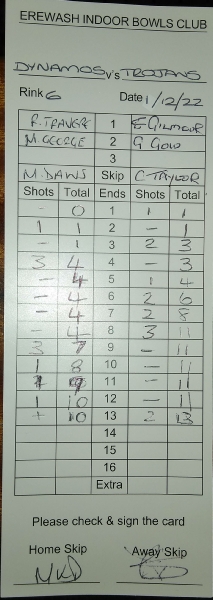 EREWASH INDOOR BOWLS CLUB
DYNAMOS v's TROJANS
Rink 6 Date 1/12/22
1 E GILMOUR
M GEORGE 2 G GOLD
3
M. DAWS Skip C TAYLOR
Shots Total Ends Shots Total
- 0 1 1 1
1 1 2 - 1
- 1 3 2 3
3 4 4 - 3
- 4 5 1 4
- 4 6 2 6
- 4 7 2 8
- 4 8 3 11
3 7 9 - 11
1 8 10 - 11
1 9 11 - 11
1 10 12 - 11
- 10 13 2 13
14
15
16
Extra
Please check & sign the card
Home Skip Away Skip